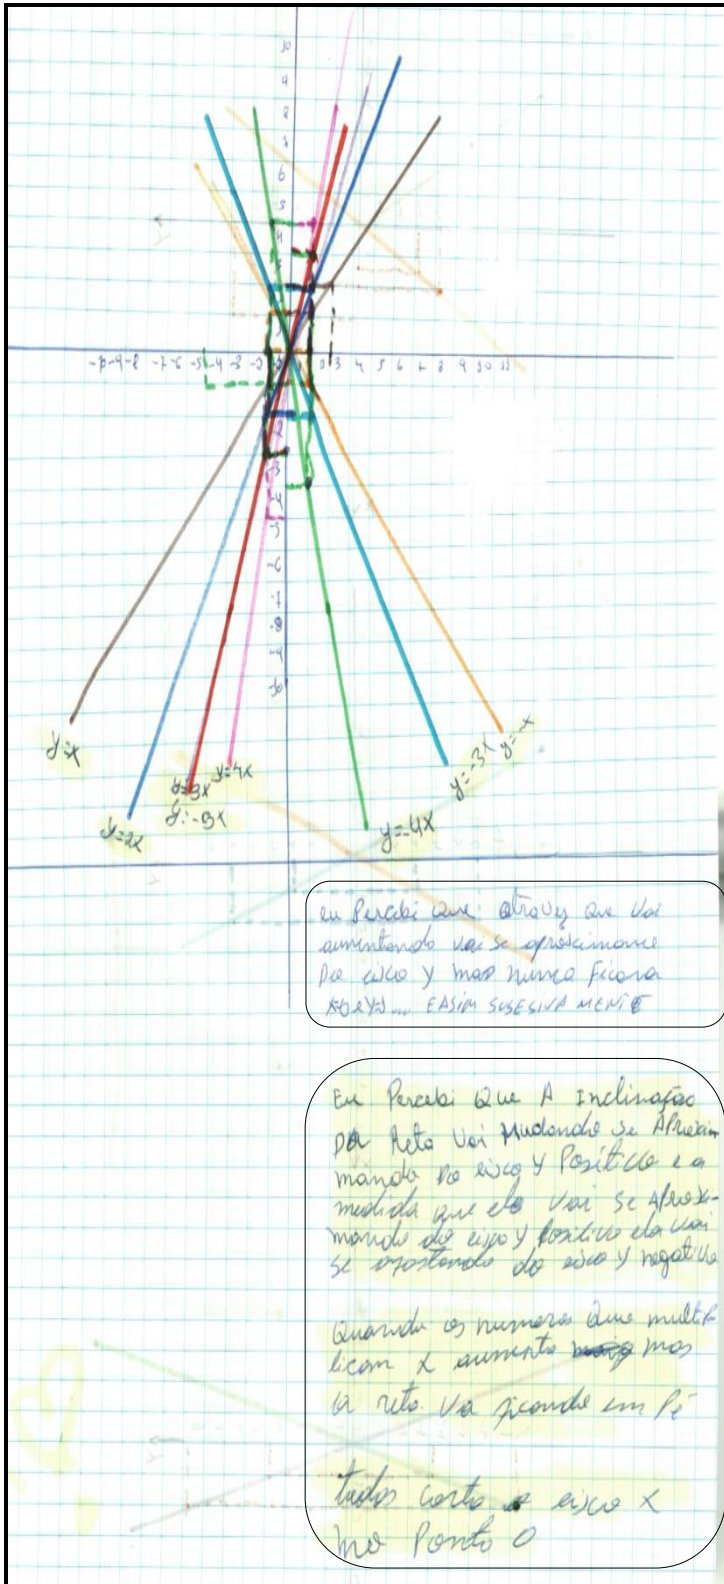 10
9
8
7
6
5
4
-10 -9 -8 -7 -6 -5 -4 -3 -2 3 4 5 6 7 8 9 10 11
-2
-3
-4
-5
-6
-7
-8
-9
-10
y=x
y=2x
y=3x
y=-3x
y=4x
y=-4x
y=-3x
y=-x
eu Percebi que atravez que vai
aumentando vai se aproximane
Do eisco y mas nunca ficara
x=0 e y=... EASIM SUSESIVA MENTE
Eu Percebi Que A Inclinação
DA Reta Vai Mudando Se Aproxim
mando Do eisco y Positivo e a
medida que ela vai se Aproxi-
mando do eixo y Positivo ela vai
se afastando do eisco y negativo
Quando os numeros Que multip
licam x aumenta mas
a reta va ficando em Pé
todas corta o eisco x
no Ponto 0